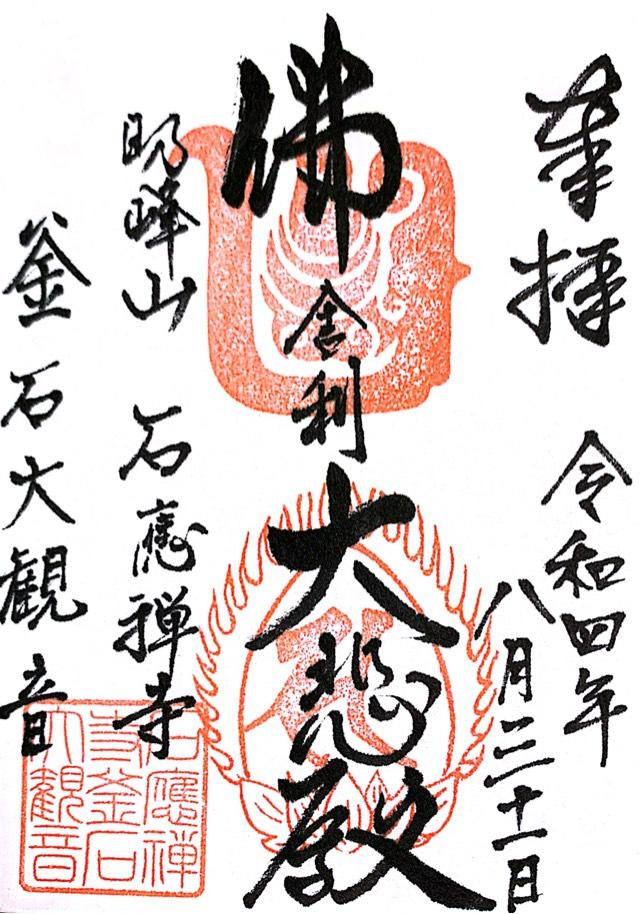 奉拝
令和四年
八月三十一日
佛舎利大悲殿
明峰山 石應禅寺
釜石大観音
石應禅
寺釜石
大観音